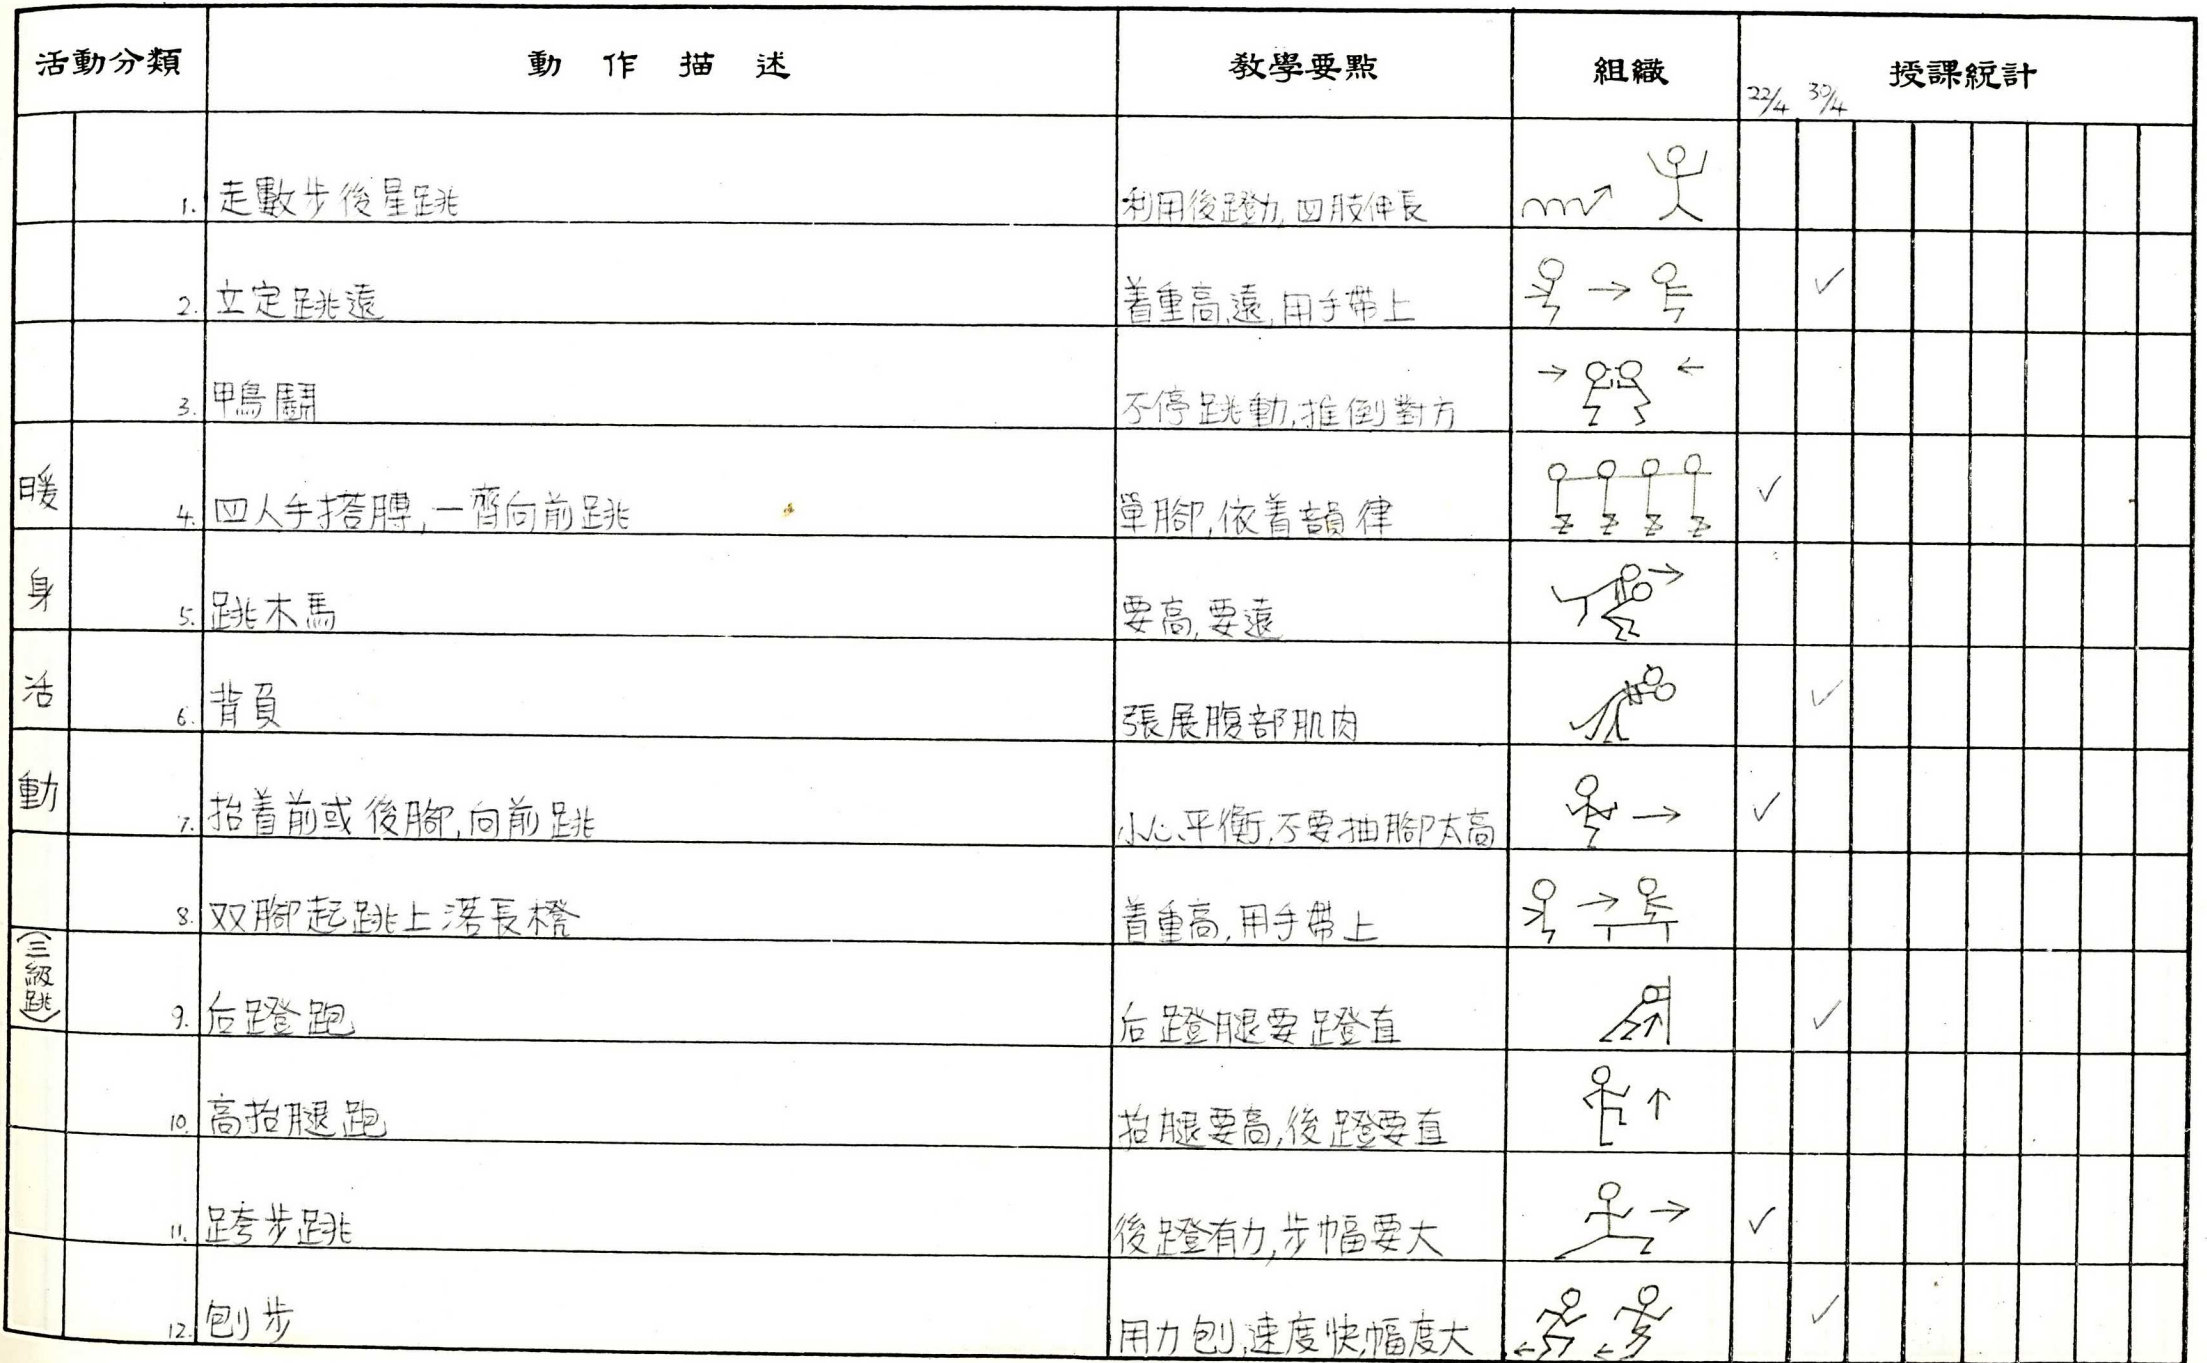 活動分類 動作描述 教學要點 組織 授課統計
22/4 30/4
暖身活動
(三級跳)
1. 走數步後星跳 利用後蹬力,四肢伸長
2. 立定跳遠 着重高,遠,用手帶上 ✓
3. 鴨鬪 不停跳動,推倒對方
4. 四人手搭膊,一齊向前跳 單腳,依着韻律 ✓
5. 跳木馬 要高,要遠
6. 背負 張展腹部肌肉 ✓
7. 抬着前或後腳,向前跳 小心平衡,不要抽腳太高 ✓
8. 双腳起跳上落長櫈 着重高,用手帶上
9. 后蹬跑 后蹬腿要蹬直 ✓
10. 高抬腿跑 抬腿要高,後蹬要直
11. 跨步跳 後蹬有力,步幅要大 ✓
12. 刨步 用力刨,速度快,幅度大 ✓